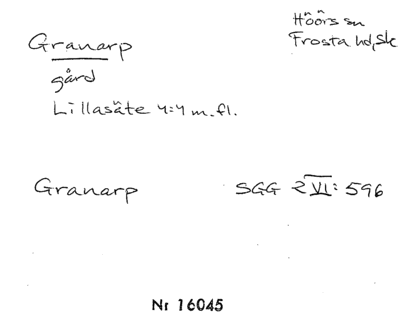 Granarp
Höörs sn
Frosta hd, Sk
gård
Lillasäte 4:4 m.fl.
Granarp SGG 2 VI: 596
Nr 16045